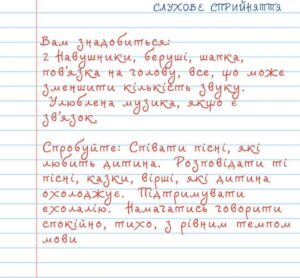 СЛУХОВЕ СПРИЙНЯТТЯ
Вам знадобиться:
2 Навушники, беруші, шапка,
пов'язка на голову, все, що може
зменшити кількість звуку.
Улюблена музика, якщо є
зв'язок.
Спробуйте: Співати пісні, які
любить дитина. Розповідати ті
пісні, казки, вірші, які дитина
охолоджує. Підтримувати
ехолалію. Намагатись говорити
спокійно, тихо, з рівним темпом
мови